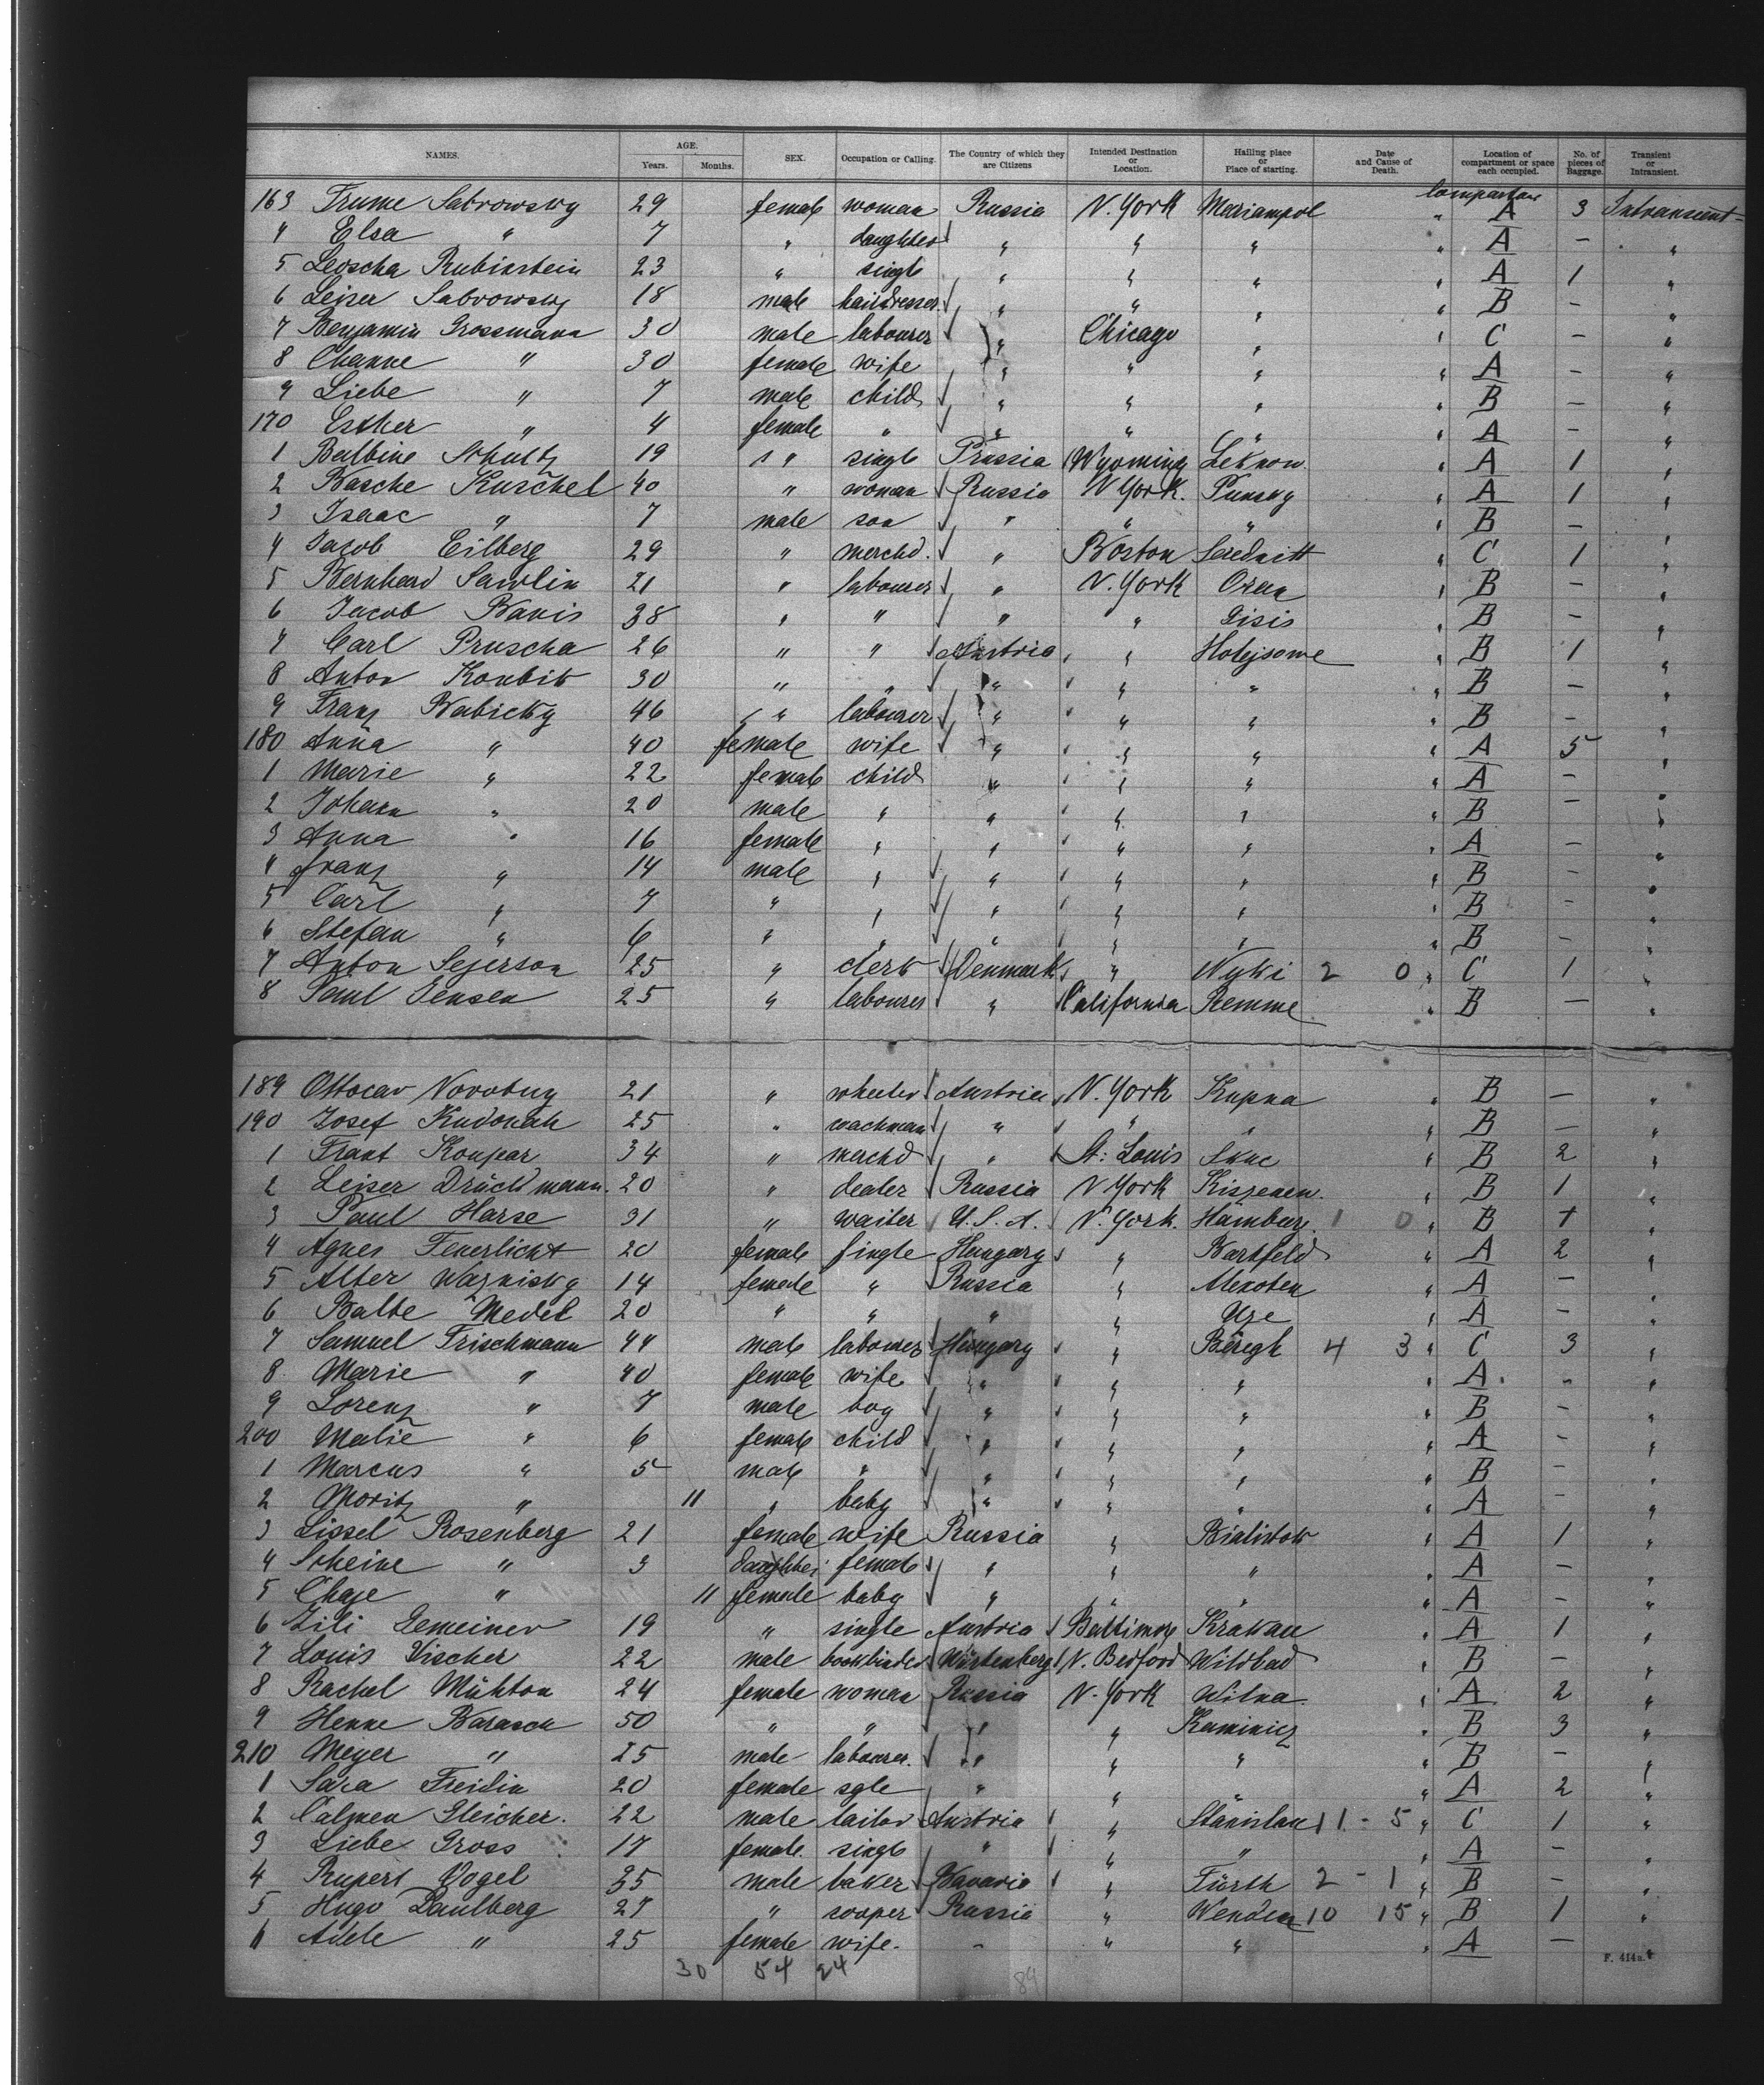 NAMES. AGE. Years. Months. SEX. Occupation or Calling. The Country of which they are Citizens Intended Destination or Location. Hailing place or Place of starting. Date and Cause of Death. Location of compartment or space each occupied. No. of pieces of Baggage. Transient or Intransient.
163 Trume Sabrowsky 29 female woman Russia N. York Mariampol " A 3 Intransient
4 Elsa " 7 " daughter " " " " A – "
5 Leoscha Rubinstein 23 " single " " " " A 1 "
6 Leiser Sabrowsky 18 male hairdresser " " " " B – "
7 Benjamin Grossmann 30 male labourer " Chicago " " C – "
8 Channe " 30 female wife " " " " A – "
9 Liebe " 7 male child " " " " B – "
170 Esther " 4 female " " " " " A – "
1 Balbine Schultz 19 " " single Prussia Wyoming Leknow " A 1 "
2 Basche Kuschel 40 " woman Russia N York. Punsky " A 1 "
3 Isaac " 7 male son " " " " B – "
4 Jacob Eilberg 29 " merchd. " Boston " C 1 "
5 Bernhard Sawlin 21 " labourer " N. York Oran " B – "
6 Jacob Banis 38 " " " " Gisis " B – "
7 Carl Pruscha 26 " " Austria " " B 1 "
8 Anton Koubik 30 " " " " " " B – "
9 Franz Babicky 46 " labourer " " " " B – "
180 Anna " 40 female wife " " " " A 5 "
1 Marie " 22 female child " " " " A – "
2 Johann " 20 male " " " " " B – "
3 Anna " 16 female " " " " " A – "
4 Franz " 14 male " " " " " B – "
5 Carl " 7 " " " " " " B – "
6 Stefan " 6 " " " " " " B – "
7 Anton Sejerson 25 " clerk Denmark " Nyki 2 0 " C 1 "
8 Paul Jensen 25 " labourer " California Remme " B – "
189 Ottocar Novotny 21 " wheeler Austria N. York Kupna " B – "
190 Josef Kudonah 25 " coachman " " " " B – "
1 Frant Koupar 34 " merchd " St: Louis Skuc " B 2 "
2 Leiser Drückmann. 20 " dealer Russia N York " B 1 "
3 Paul Harse 31 " waiter U.S.A. N. York. Hamburg. 1 0 " B "
4 Agnes Feuerlicht 20 female single Hungary " Bartfeld " A 2 "
5 Alter Wazkisky 14 female " Russia " Mexoten " A – "
6 Balbe Medel 20 " " " " Uze " A – "
7 Samuel Frischmann 44 male labourer Hungary " Beregh 4 3 " C 3 "
8 Marie " 40 female wife " " " " A. – "
9 Lorenz " 7 male boy " " " " B – "
200 Malie " 6 female child " " " " A – "
1 Marcus " 5 male " " " " " B – "
2 Moritz " 11 " baby " " " " A – "
3 Lissel Rosenberg 21 female wife Russia " Bialistok " A 1 "
4 Scheine " 3 daughter female " " " " A – "
5 Chaje " 11 female baby " " " " A – "
6 Zili Gemeiner 19 " single Austria Baltimore Krakau " A 1 "
7 Louis Vischer 22 male bookbinder Würtenberg N. Bedford Wildbad " B – "
8 Rachel Mühton 24 female woman Russia N. York Wilna. " A 2 "
9 Henne Barasch 50 " " " " Kaminicz " B 3 "
210 Meyer " 25 male labourer. " " " " B – "
1 Sara Freidin 20 female sgle " " " " A 2 "
2 Calmen Gleicher. 22 male tailor Austria " Stanislau 11 - 5 " C 1 "
3 Liebe Gross 17 female. single " " " " A – "
4 Rupert Vogel 35 male baker Bavaria " Fürth 2 - 1 " B – "
5 Hugo Paulberg 27 " cooper Russia " Wenden 10 15 " B 1 "
6 Adele " 25 female wife. – " " " A –
30 54 24 84
F. 414a.